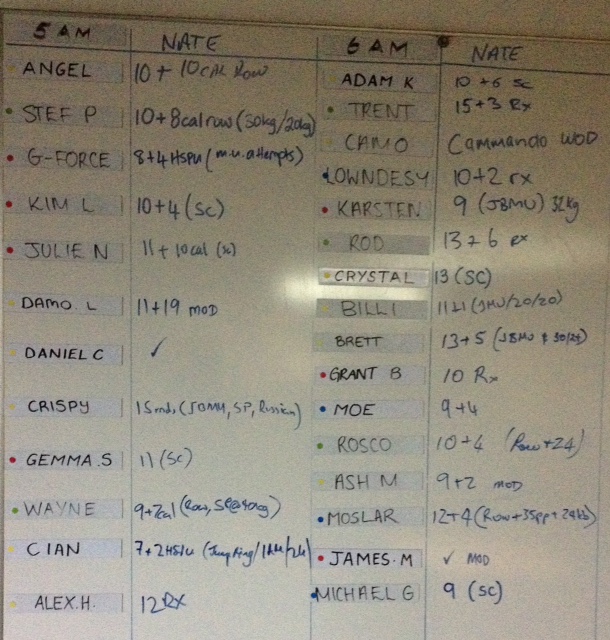 5 AM NATE
ANGEL 10 + 10 CAL Row
STEF P 10+8calrow (30kg/20kg)
G-FORCE 8+4 HSPU (m.u. attempts)
KIM L 10+4 (SC)
JULIE N 11 + 10cal (sc)
DAMO. L 11+19 MOD
DANIEL C ✓
CRISPY 15rnds, (JBMU, SP, Russian)
GEMMA.S 11 (SC)
WAYNE 9+7cal (Row, SP@40kg)
CIAN 7+2HSPU (Jump Ring/
ALEX.H. 12 RX
6 AM NATE
ADAM K 10 +6 SC
TRENT 15+3 Rx
CAMO Commando WOD
LOWNDESY 10+2 rx
KARSTEN 9 (JBMU) 32kg
ROD 13+6 RX
CRYSTAL 13 (SC)
BILLI 11+1 (JMU/20/20)
BRETT 13+5 (JBMU
GRANT B 10 Rx
MOE 9+4
ROSCO 10+4 (Row+24)
ASH M 9+2 MOD
MOSLAR 12+4 (Row+35pp+24kb)
JAMES.M ✓ MOD
MICHAEL G 9 (SC)